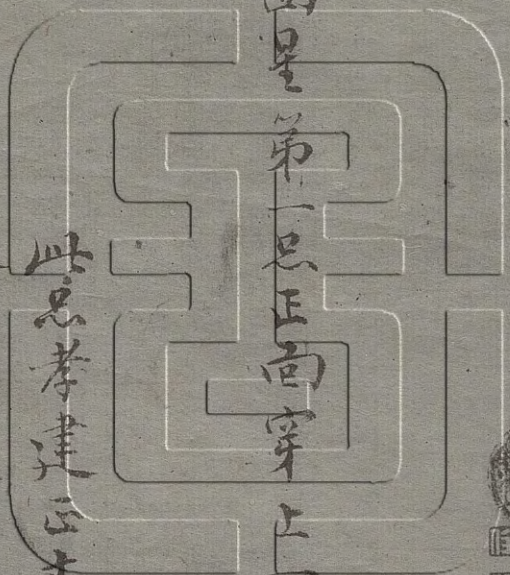 星第一忌正面穿上
此忌孝建正